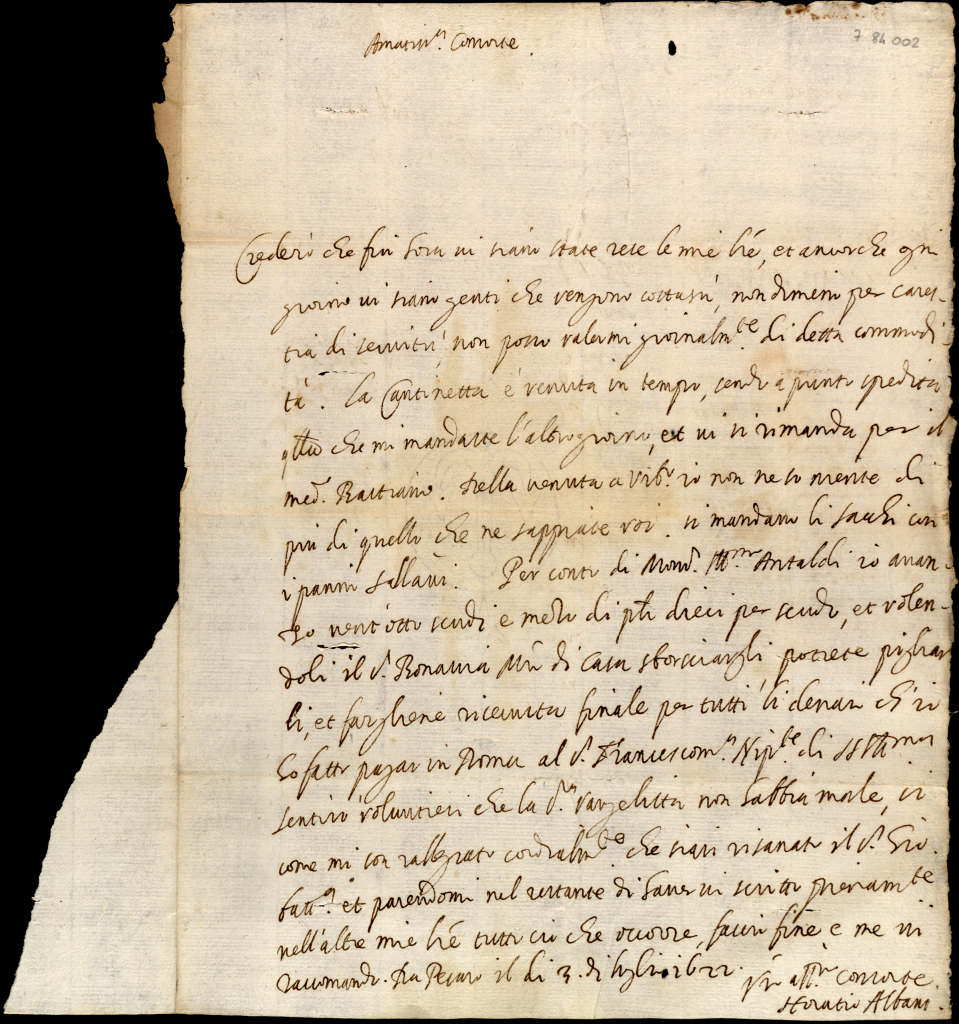 Amatiss.ma Consorte.
7 84 002
Crederò che fin hora vi siano state rese le mie lre, et ancorche ogni
giorno vi siano genti che vengono costassù, nondimeno per cares-
tia di servitù non posso valermi giornalm.te di detta commodi
tà. La Cantinetta è venuta in tempo, sendo a punto spedita
qlla che mi mandaste l'altro giorno, et vi si rimanda per il
med.o Bastiano. Della venuta a Urb.o io non ne so niente di
più di quello che ne sappiate voi. si mandano li sacchi con
i panni
Per conto di Mons.r Ill.mo Antaldi io avan-
zo vent'otto scudi e mezo di pli dieci per scudo, et volen-
doli il S.r di Casa sborsiargli, potrete pigliar
li, et fargliene ricevuta finale per tutti li denari ch'io
ho fatto pagar in Roma al S.r Francescom.a Nip.te di SS Ill.ma
sentirò voluntieri che la S.ra Vangelista non habbia male, si
come mi son rallegrato cordialm.te che siasi risanato il S.r Gio.
batt.a et parendomi nel restante di haver vi scritto pienam.te
nell'altre mie lre tutto ciò che occorre, faccio fine e me vi
raccomando. Da Pesaro il dì 3. di luglio 1622.
Vro aff.mo Consorte.
Horatio Albani.